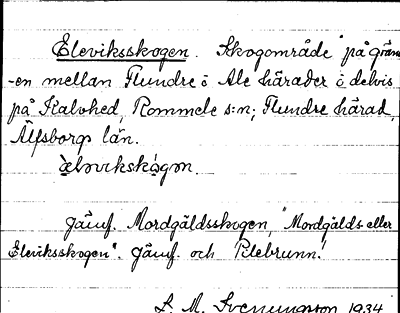 Eleviksskogen. Skogområde på gräns
-en mellan Flundre o Ale härader o delvis
på Kalvhed, Rommele s:n; Flundre härad,
Älfsborgs län.
Jämf. Mordgäldsskogen, "Mordgälds eller
Eleviksskogen". Jämf. och Pilebrunn!
S. M. Svenungsson 1934